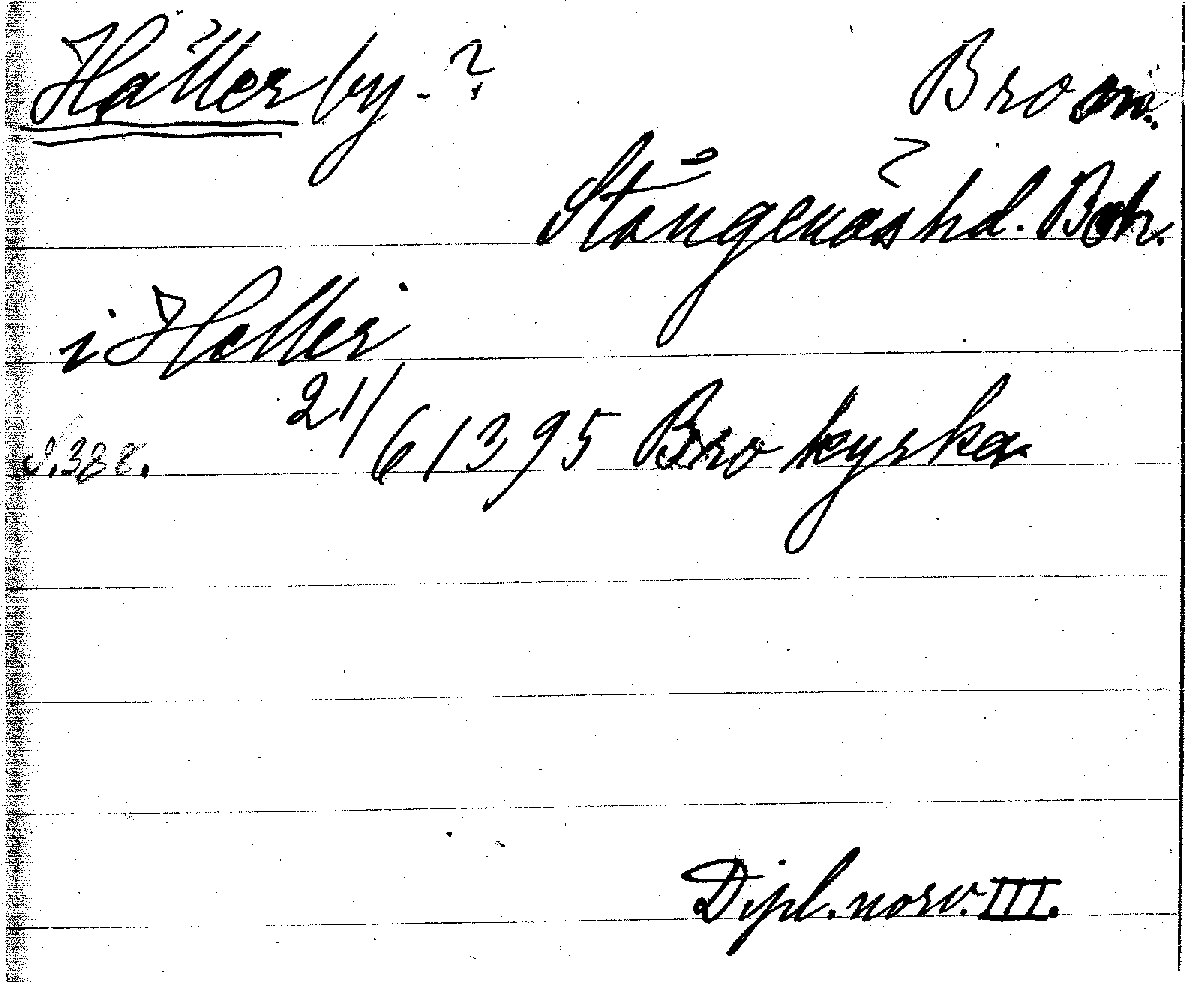 Hällerby-? Bro sn.
Stångenäs hd. Boh.
i Haller
21/6 1395 Bro kyrka
S. 388.
Dipl. norv. III.